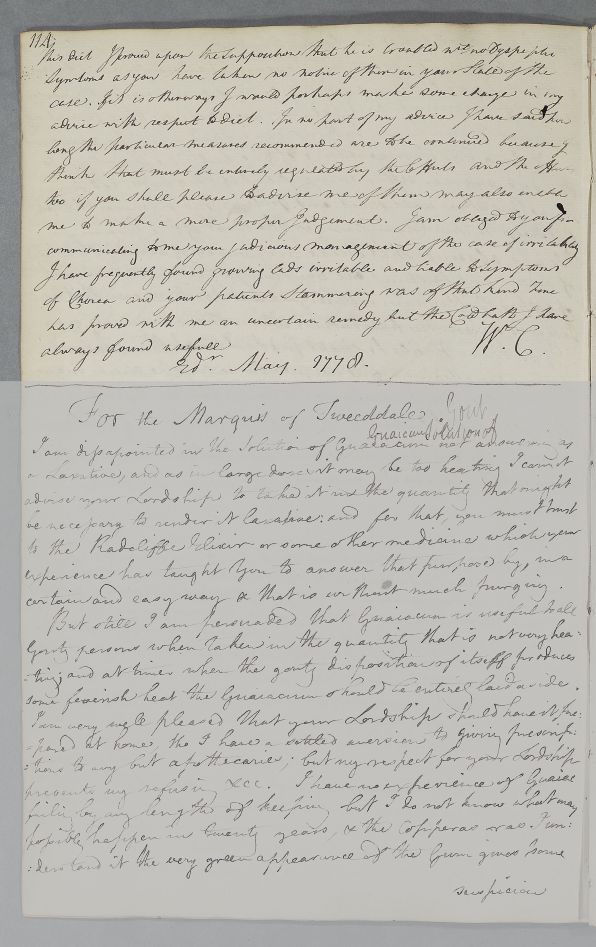 114,
this diet I proceed upon the supposition that he is troubled wt. no Dyspeptic
Symtoms as you have taken no notice of them in your State of the
case. If it is otherways I would perhaps make some change in my
advice with respect to diet. In no part of my advice I have said how
long the particular measures recommended are to be continued because I
think that must be entirely regulated by the Effects and the Effects
too if you shall please to advise me of them may also enable
me to make a more proper Judgement. I am obliged to you for
communicating to me your judicious management of the case of irritability
I have frequently found growing lads irritable and liable to Symptoms
of Chorea and your patients Stammering was of that kind
has proved with me an uncertain remedy but the Cold bath I have
always found usefull
W. C.
Edr. May. 1778.
For the Marquiss of Tweeddale
Gout
Guaicum Solution of
I am dissapointed in the Solution of Guaiacum not answering as
a Laxative, and as in large doses it may be too heating I cannot
advise your Lordship to take it in the quantity that might
be necessary to render it laxative; and for that, you must trust
to the Radcliffe Elixir or some other medicine which your
experience has taught you to answer that purpose by, in a
certain and easy way & that is without much purging.
But still I am persuaded that Guaiacum is useful to all
Gouty persons when taken in the quantity that is not very hea-
-ting; and at times when the gouty disposition of itself produces
some feverish heat the Guaiacum should be entirely laid aside.
I am very well pleased that your Lordship should have it pre-
-pared at home, tho I have a settled aversion to giving prescrip:
:tions to any but apothecaries; but my respect for your Lordship
prevents my refusing &cc. I have no experience of Guaiac
failing by any length of keeping but I do not know what may
possible happen in twenty years, & the Copperas was. I un:
:derstand it the very green appearance of the Gum gives some
suspicion